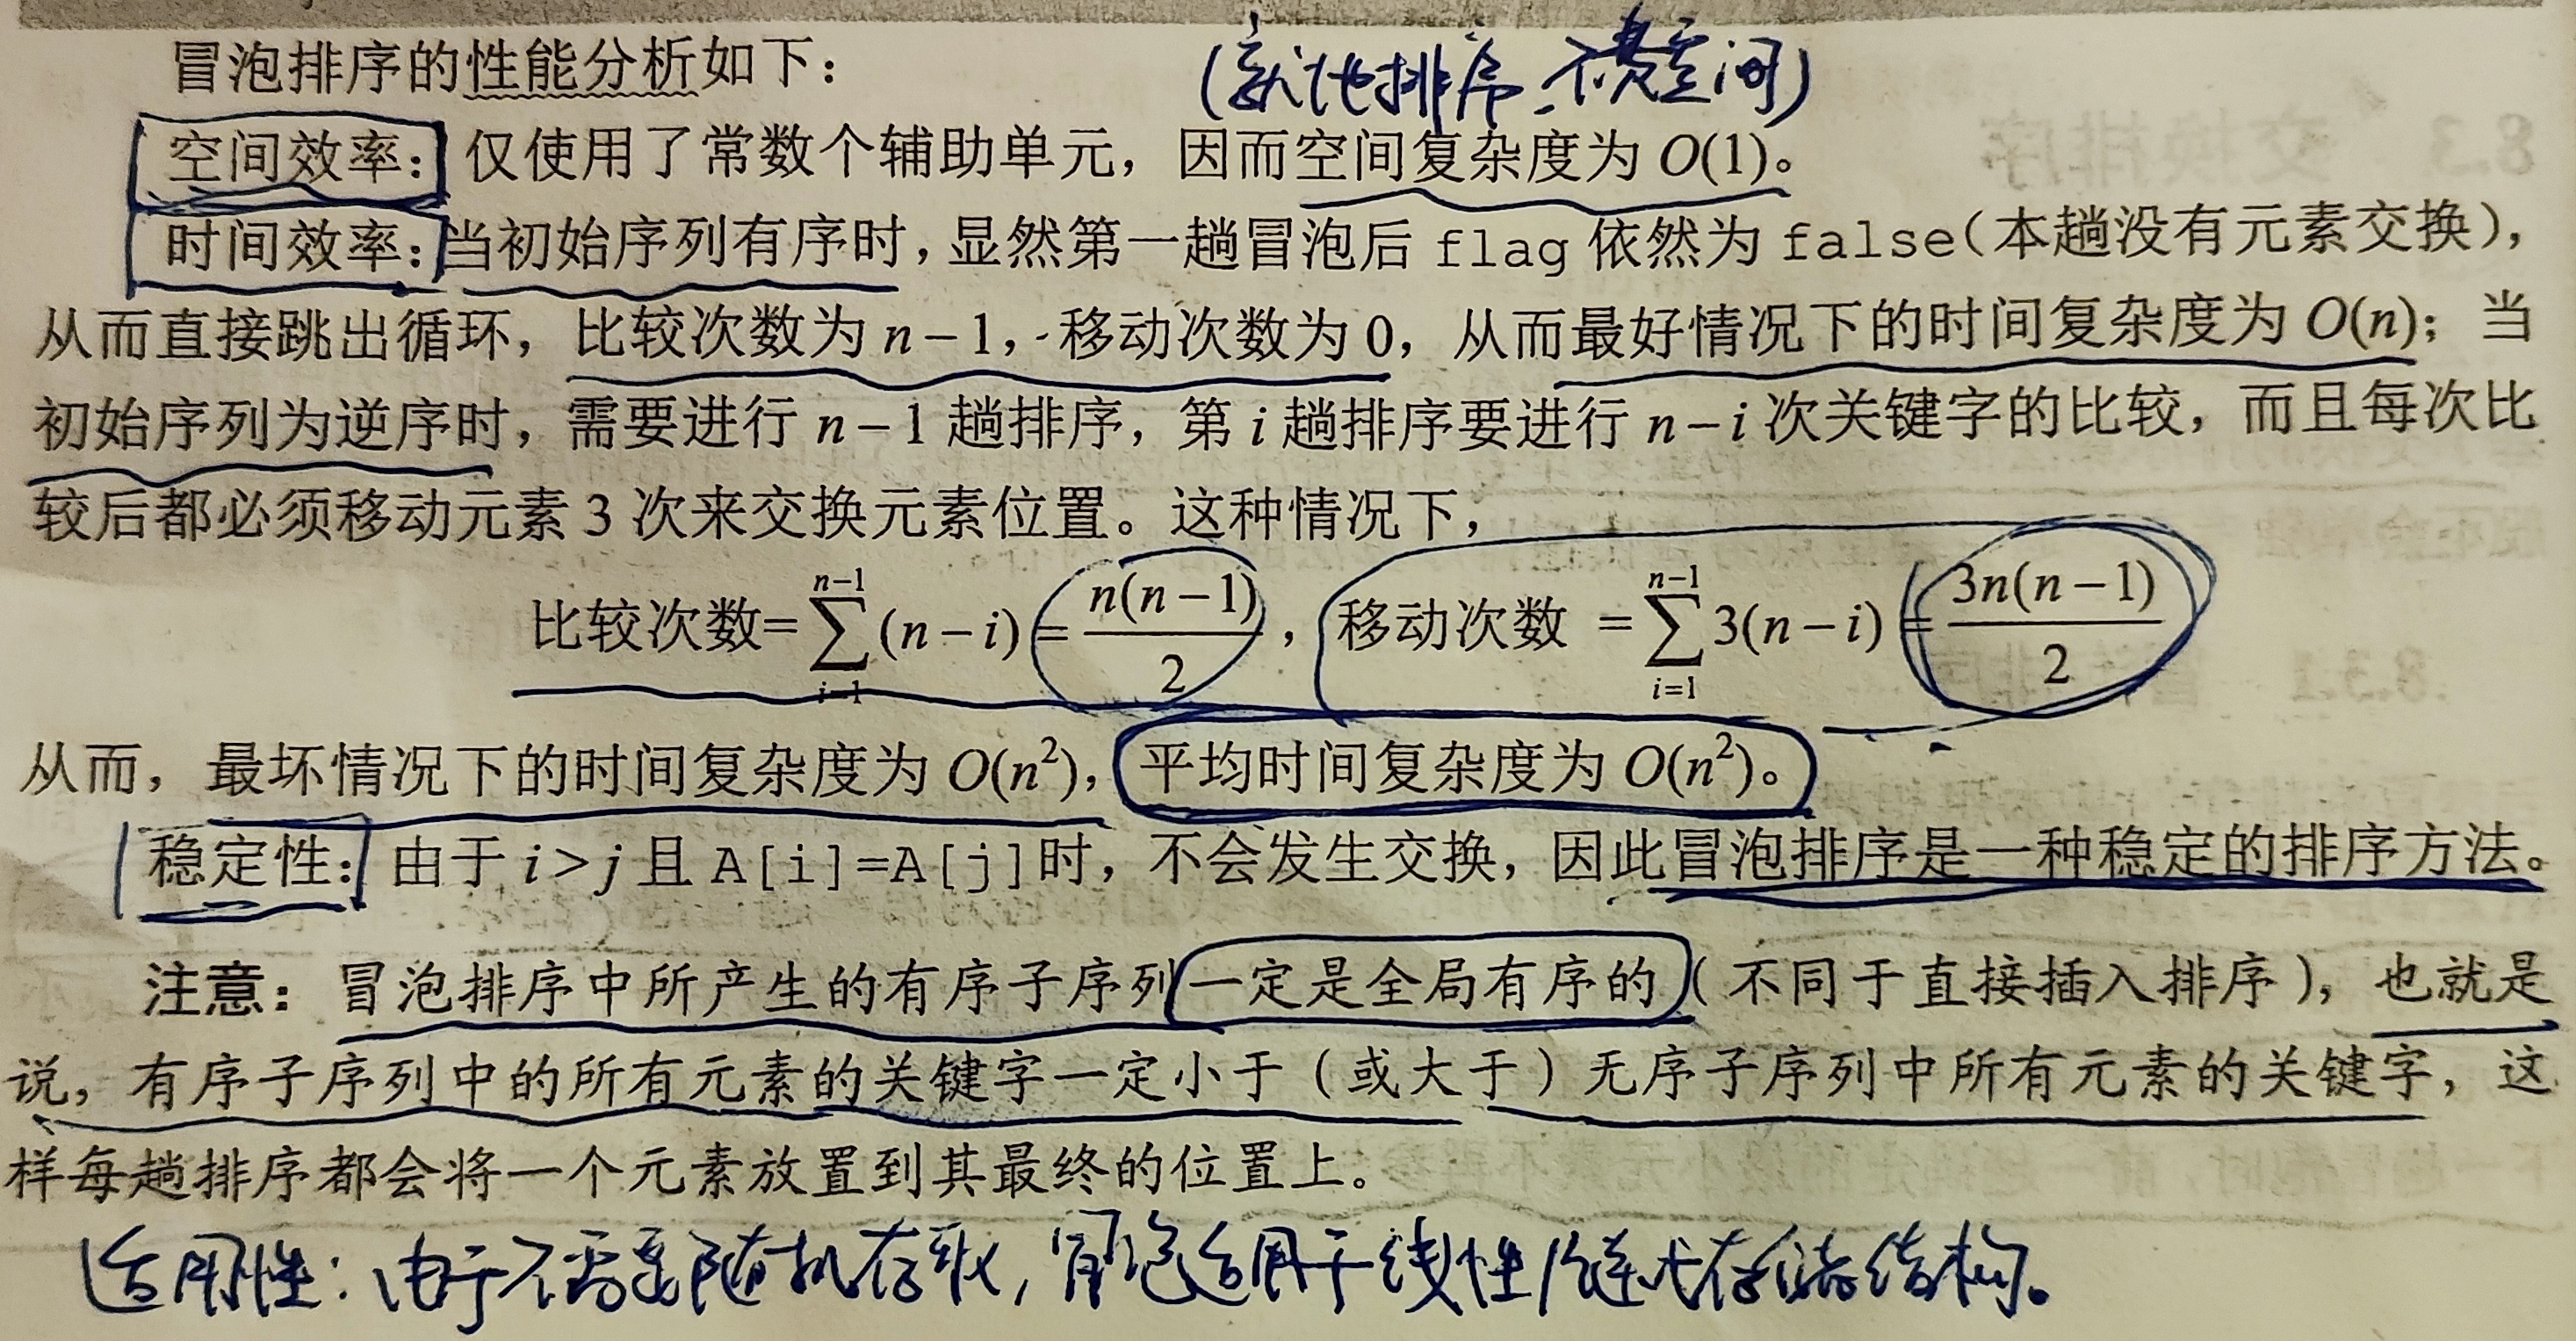 冒泡排序的性能分析如下：
(就地排序,不费空间)
空间效率：仅使用了常数个辅助单元，因而空间复杂度为 O(1)。
时间效率：当初始序列有序时，显然第一趟冒泡后 flag 依然为 false（本趟没有元素交换），
从而直接跳出循环，比较次数为 n−1，移动次数为 0，从而最好情况下的时间复杂度为 O(n)；当
初始序列为逆序时，需要进行 n−1 趟排序，第 i 趟排序要进行 n−i 次关键字的比较，而且每次比
较后都必须移动元素 3 次来交换元素位置。这种情况下，
比较次数=∑_{i=1}^{n−1}(n−i)=n(n−1)/2，移动次数 =∑_{i=1}^{n−1}3(n−i)=3n(n−1)/2
从而，最坏情况下的时间复杂度为 O(n²)，平均时间复杂度为 O(n²)。
稳定性：由于 i>j 且 A[i]=A[j]时，不会发生交换，因此冒泡排序是一种稳定的排序方法。
注意：冒泡排序中所产生的有序子序列一定是全局有序的（不同于直接插入排序），也就是
说，有序子序列中的所有元素的关键字一定小于（或大于）无序子序列中所有元素的关键字，这
样每趟排序都会将一个元素放置到其最终的位置上。
适用性：由于不需要随机存取,冒泡适用于线性/链式存储结构。
8.3 交换排序